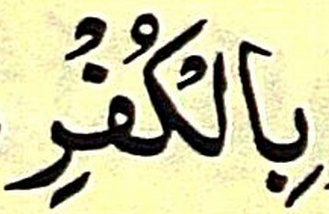 بِالْكُفْرِ